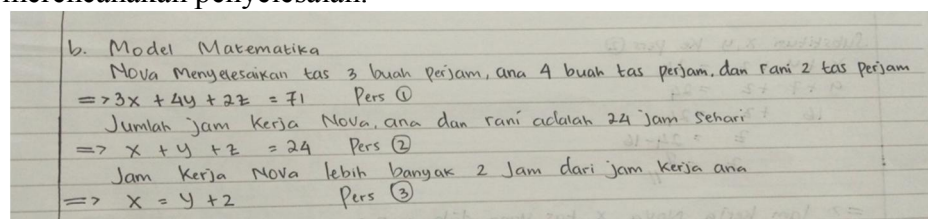 merencanakan penyelesaian.
b. Model Matematika
Nova Menyelesaikan tas 3 buah perjam, ana 4 buah tas perjam. dan rani 2 tas perjam
=> 3x + 4y + 2z = 71 Pers ①
Jumlah jam kerja Nova, ana dan rani adalah 24 jam sehari
=> x + y + z = 24 Pers ②
Jam kerja Nova lebih banyak 2 Jam dari jam kerja ana
=> x = y + 2 Pers ③